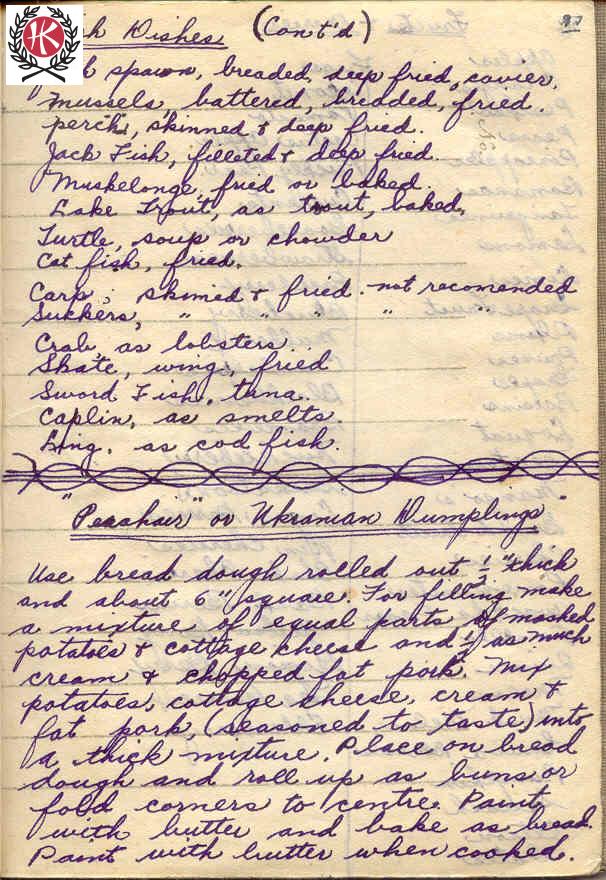 Dishes (Cont'd)
spawn, breaded, deep fried, cavier.
Mussels, battered, bredded, fried.
perch, skinned & deep fried.
Jack Fish, filleted & deep fried.
Muskelonge, fried or baked.
Lake Trout, as trout, baked,
Turtle, soup or chowder
Cat fish, fried.
Carp, skinned & fried. not recomended
Suckers, " " " " "
Crab, as lobsters
Skate, wings, fried
Sword Fish, tuna.
Caplin, as smelts.
Ling, as cod fish.
or Ukranian Dumplings"
Use bread dough rolled out ½ "thick
and about 6" square. For filling make
a mixture of equal parts of mashed
potatoes & cottage cheese and ½ as much
cream & chopped fat pork. Mix
potatoes, cottage cheese, cream &
fat pork, (seasoned to taste) into
a thick mixture. Place on bread
dough and roll up as buns or
fold corners to centre. Paint
with butter and bake as bread.
Paint with butter when cooked.